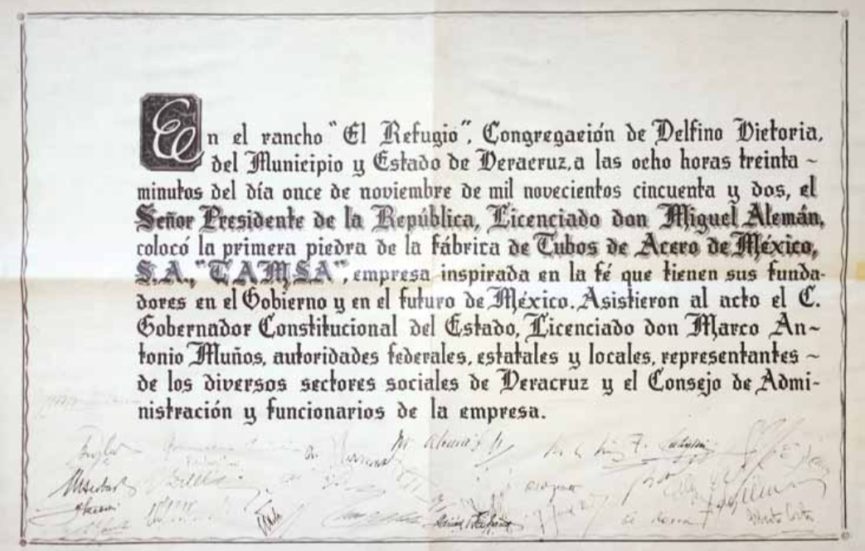 En el rancho "El Refugio", Congregación de Delfino Victoria,
del Municipio y Estado de Veracruz, a las ocho horas treinta ~
minutos del día once de noviembre de mil novecientos cincuenta y dos, el
Señor Presidente de la República, Licenciado don Miguel Alemán,
colocó la primera piedra de la fábrica de Tubos de Acero de México,
S.A., "TAMSA", empresa inspirada en la fé que tienen sus funda-
dores en el Gobierno y en el futuro de México. Asistieron al acto el C.
Gobernador Constitucional del Estado, Licenciado don Marco An-
tonio Muños, autoridades federales, estatales y locales, representantes ~
de los diversos sectores sociales de Veracruz y el Consejo de Admi-
nistración y funcionarios de la empresa.